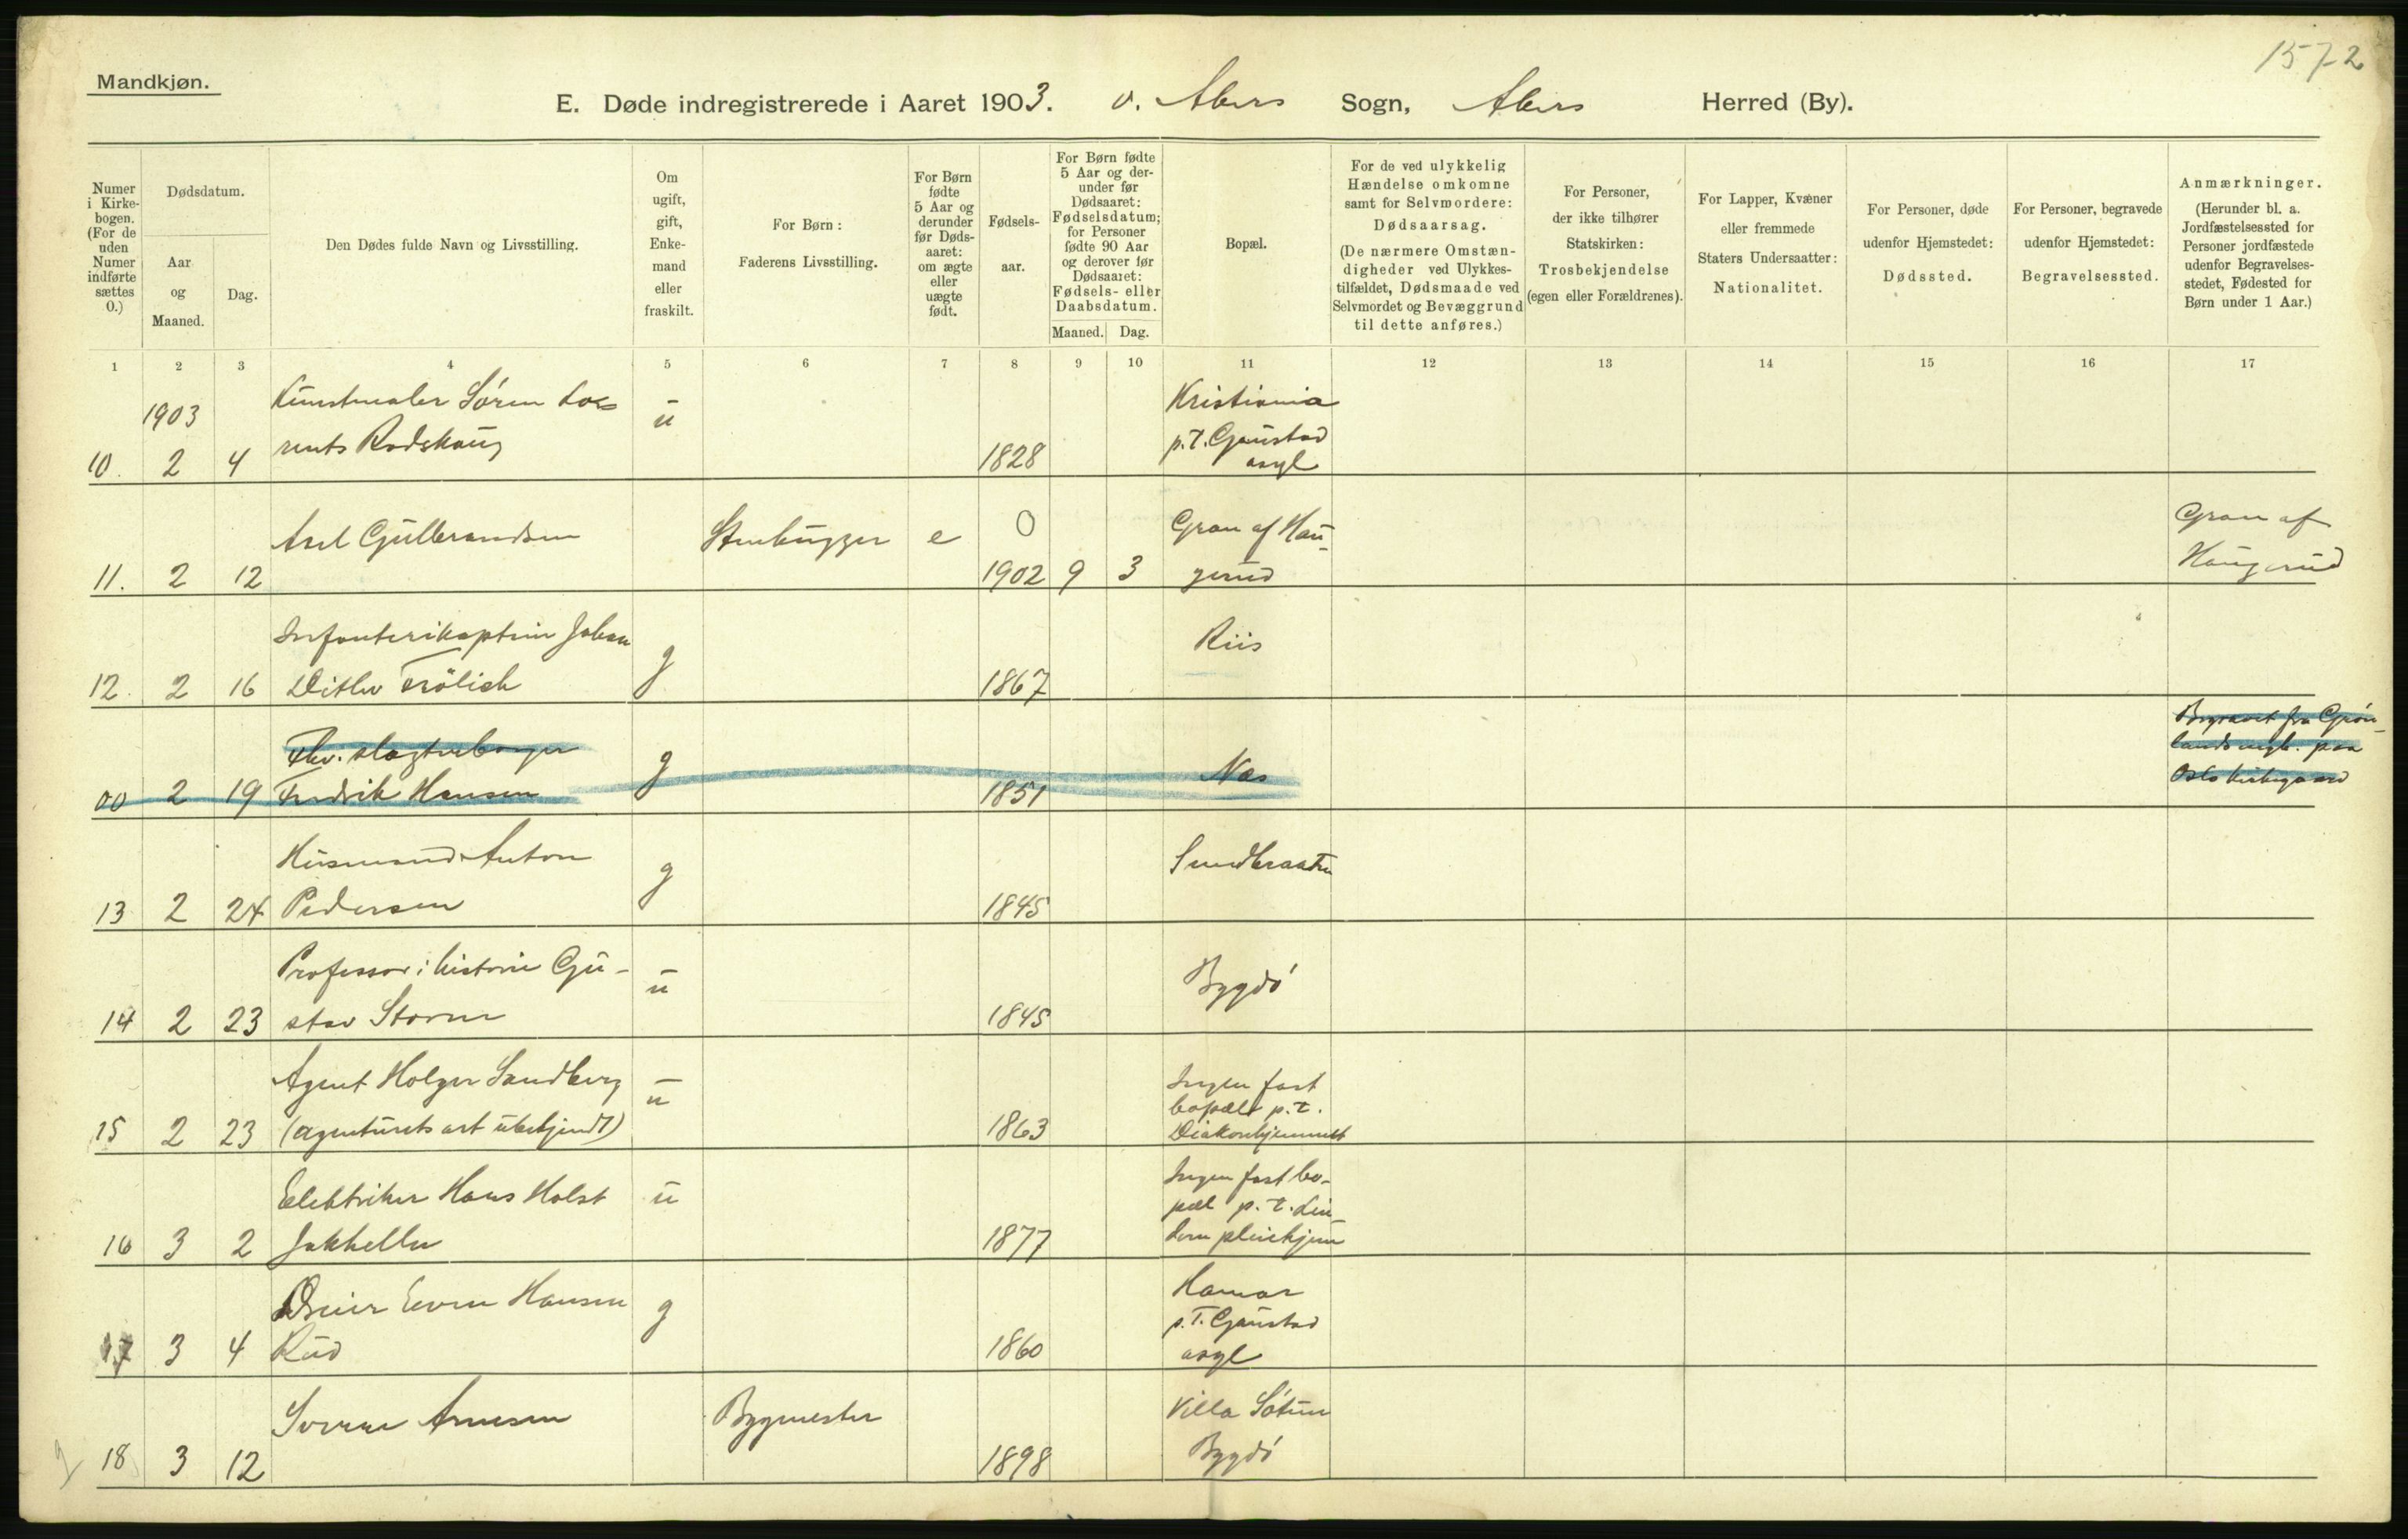 1572
Mandkjøn.
E. Døde indregistrerede i Aaret 1903. v. Akers Sogn, Akers Herred (By).
Numer i Kirkebogen. (For de uden Numer indførte sættes 0.)
Dødsdatum.
Aar og Maaned.
Dag.
Den Dødes fulde Navn og Livsstilling.
Om ugift, gift, Enkemand eller fraskilt.
For Børn: Faderens Livsstilling.
For Børn fødte 5 Aar og derunder før Dødsaaret: om ægte eller uægte født.
Fødselsaar.
For Børn fødte 5 Aar og derunder før Dødsaaret: Fødselsdatum; for Personer fødte 90 Aar og derover før Dødsaaret: Fødsels- eller Daabsdatum.
Maaned. Dag.
Bopæl.
For de ved ulykkelig Hændelse omkomne samt for Selvmordere: Dødsaarsag. (De nærmere Omstændigheder ved Ulykkestilfældet, Dødsmaade ved Selvmordet og Bevæggrund til dette anføres.)
For Personer, der ikke tilhører Statskirken: Trosbekjendelse (egen eller Forældrenes).
For Lapper, Kvæner eller fremmede Staters Undersaatter: Nationalitet.
For Personer, døde udenfor Hjemstedet: Dødssted.
For Personer, begravede udenfor Hjemstedet: Begravelsessted.
Anmærkninger. (Herunder bl. a. Jordfæstelsessted for Personer jordfæstede udenfor Begravelsesstedet, Fødested for Børn under 1 Aar.)
1 2 3 4 5 6 7 8 9 10 11 12 13 14 15 16 17
1903 Kunstmaler Søren Lau ü Kristiania
rents Rodskaug p.t. Gaustad
10. 2 4 1828 asyl
Axel Gulbrandsen Stenhugger e 0 Gran af Hau- Gran af
11. 2 12 1902 9 3 gerud Haugerud
Infanterikaptein Johan g Riis
12. 2 16 Ditlev Frölich 1867
Fhv. slagterborger g Næs Begravet fra Grøn-
00 2 19 Fredrik Hansen 1851 lands mgh. paa
Oslo kirkegaard
Husmand Anton g Sundbraaten
13 2 24 Pedersen 1845
Professor i historie Gu- u Bygdø
14 2 23 stav Storm 1845
Agent Holger Sandberg u Ingen fast
bopæl p.t.
15 2 23 (agenturets art ubekjendt) 1863 Diakonhjemmet
Elektriker Hans Holst u Ingen fast bo-
pæl p.t. Lin
16 3 2 Jakhelln 1877 dern pleiehjem
Dreier Even Hansen g Hamar
p.t. Gaustad
17 3 4 Rud 1860 asyl
Sverre Arnesen Bygmester Villa Sótun
18 3 12 1898 Bygdø